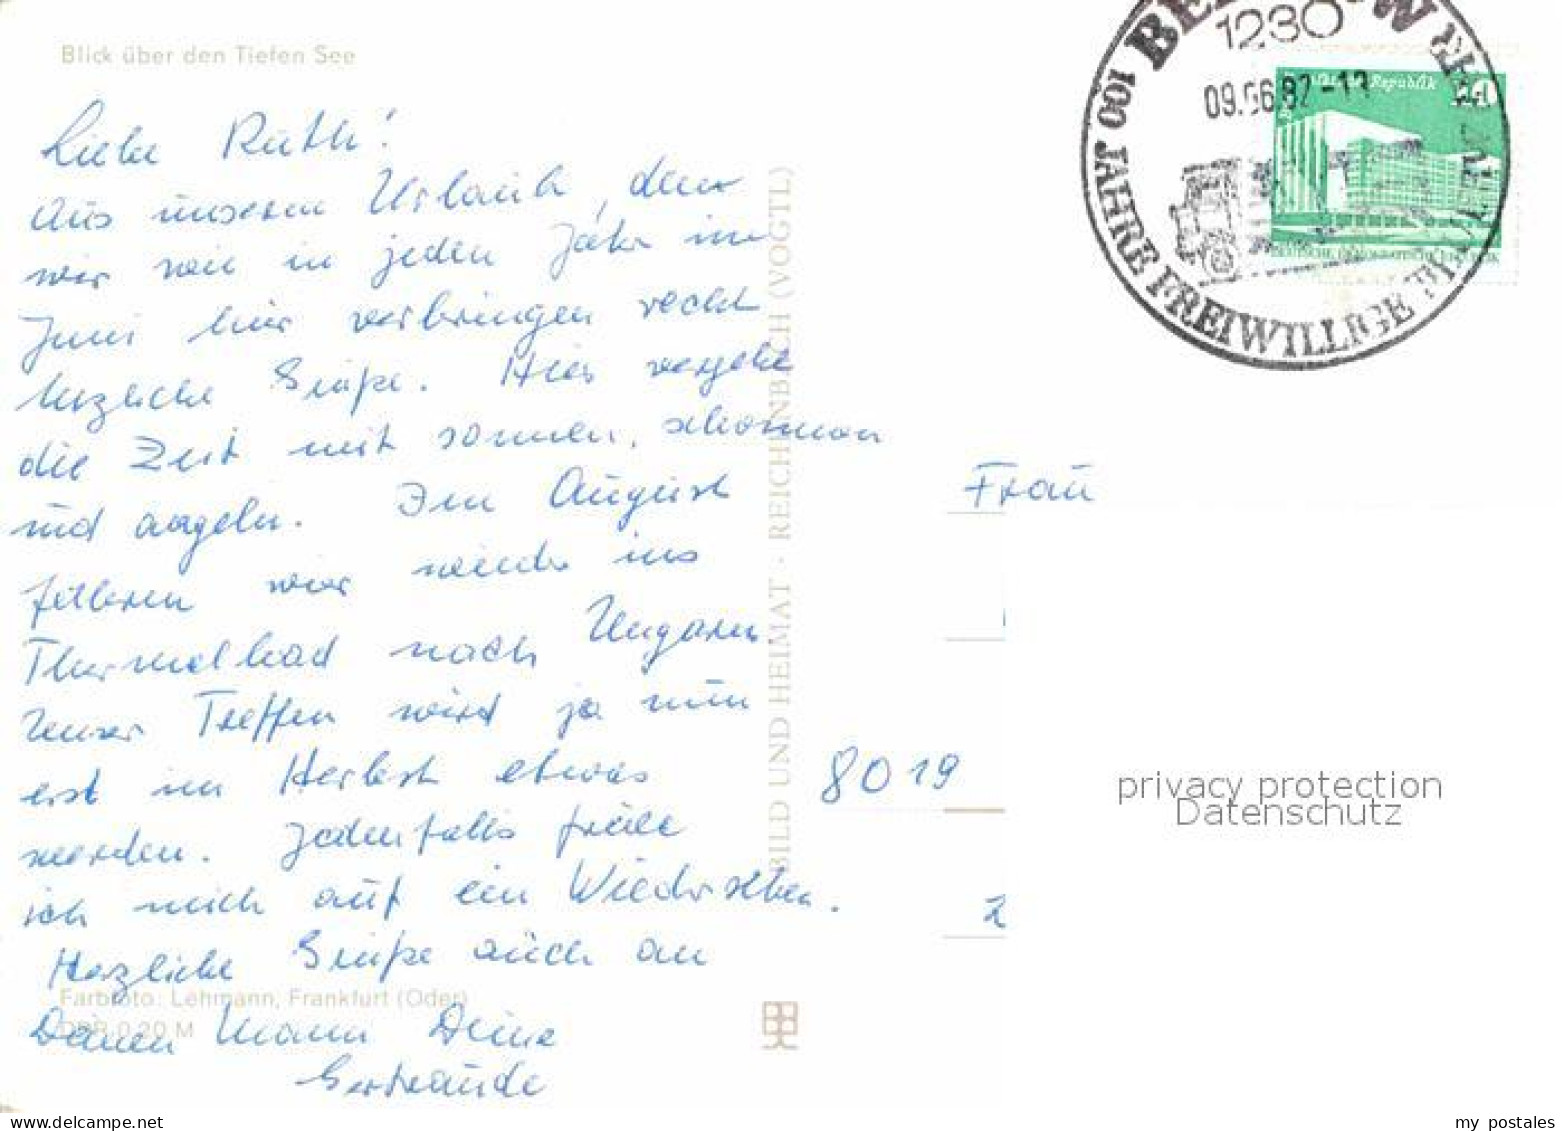 Blick über den Tiefen See
Liebe Ruth!
Aus unserem Urlaub, den
wir wie in jeden Jahr im
Juni hier verbringen recht
herzliche Grüße. Hier vergeht
die Zeit mit sonnen, schwimmen
und angeln. Im August
fahren wir wieder ins
Thermalbad nach Ungarn.
Unser Treffen wird ja nun
erst im Herbst etwas
werden. Jedenfalls freue
ich mich auf ein Wiedersehen.
Herzliche Grüße auch an
Deinen Mann Deine
Gertraude
Farbfoto: Lehmann, Frankfurt (Oder)
DDR 0,20 M
BILD UND HEIMAT · REICHENBACH (VOGTL)
1230
09.06.82
100 JAHRE FREIWILLIGE
Republik
Frau
8019
privacy protection
Datenschutz
www.delcampe.net
my_postales